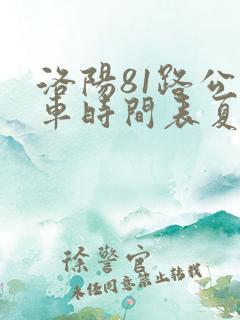 洛陽81路公
車時間表夏
徐警官
未經同意禁止轉載